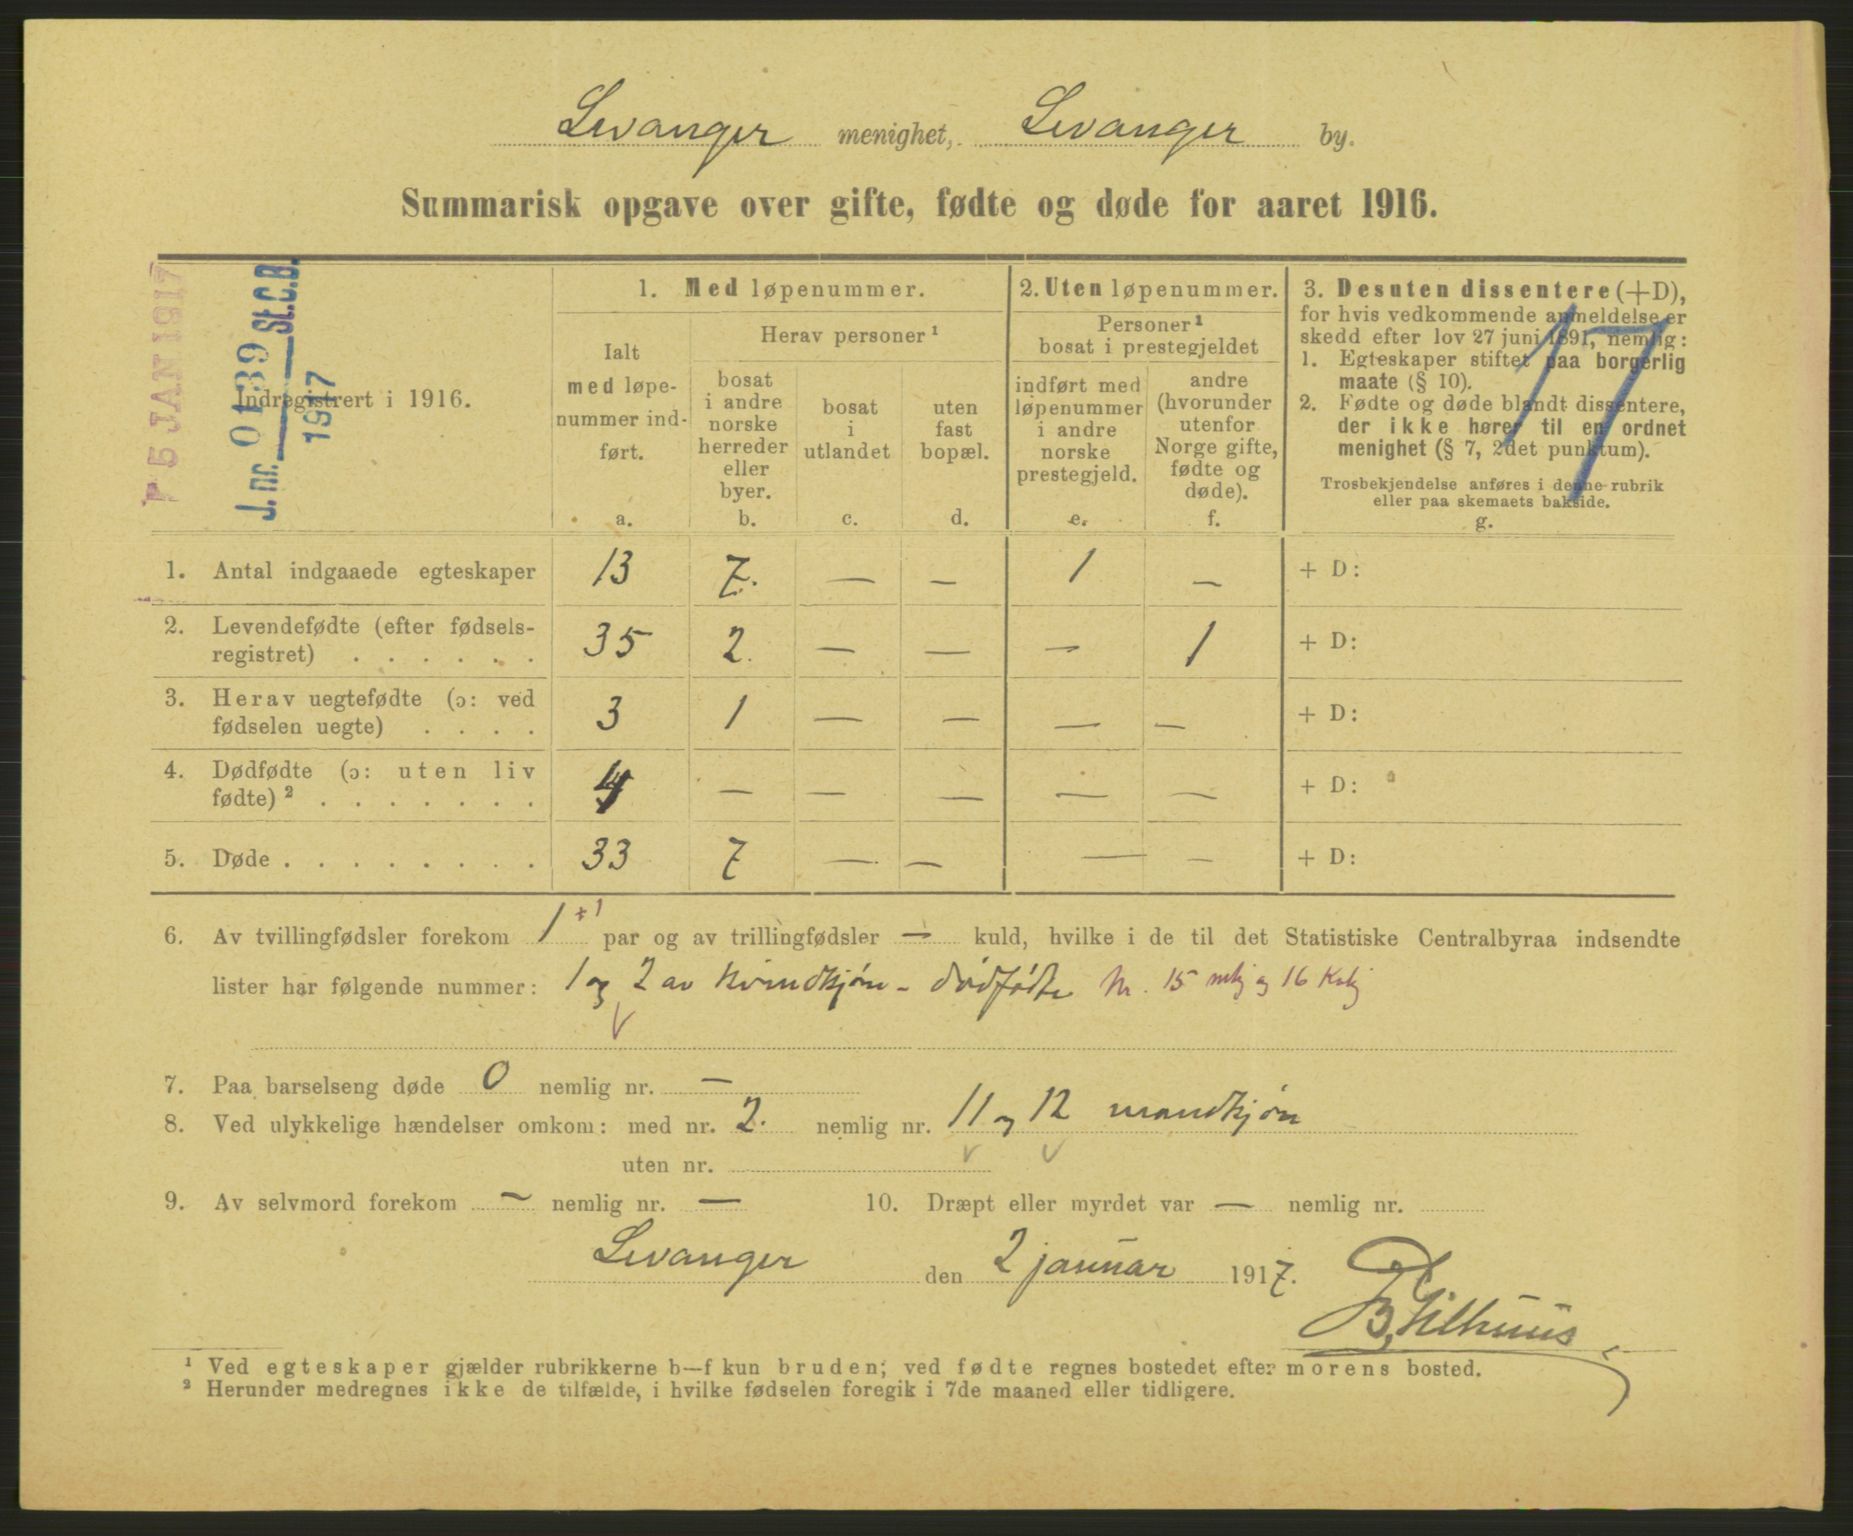 Levanger menighet, Levanger by.
Summarisk opgave over gifte, fødte og døde for aaret 1916.
5 JAN 1917
J. nr. 0139 St.C.B.
1917
Indregistrert i 1916.
1. Med løpenummer.
Ialt
med løpe-
nummer ind-
ført.
a.
Herav personer ¹
bosat
i andre
norske
herreder
eller
byer.
b.
bosat
i
utlandet
c.
uten
fast
bopæl.
d.
2. Uten løpenummer.
Personer ¹
bosat i prestegjeldet
indført med
løpenummer
i andre
norske
prestegjeld.
e.
andre
(hvorunder
utenfor
Norge gifte,
fødte og
døde).
f.
3. Desuten dissentere (+D),
for hvis vedkommende anmeldelse er
skedd efter lov 27 juni 1891, nemlig:
1. Egteskaper stiftet paa borgerlig
maate (§ 10).
2. Fødte og døde blandt dissentere,
der ikke hører til en ordnet
menighet (§ 7, 2det punktum).
Trosbekjendelse anføres i denne rubrik
eller paa skemaets bakside.
g.
17
1. Antal indgaaede egteskaper 13 7. — — 1 — + D:
2. Levendefødte (efter fødsels-
registret) . . . . . . 35 2. — — — 1 + D:
3. Herav uegtefødte (ɔ: ved
fødselen uegte) . . . . 3 1 — — — — + D:
4. Dødfødte (ɔ: uten liv
fødte) ² . . . . . . . 4 — — — — — + D:
5. Døde . . . . . . . . 33 7 — — — — + D:
6. Av tvillingfødsler forekom 1 +1 par og av trillingfødsler — kuld, hvilke i de til det Statistiske Centralbyraa indsendte
lister har følgende nummer: 1 og 2 av kvindkjøn - dødfødte Nr. 15 mkj og 16 Kvkj
7. Paa barselseng døde 0 nemlig nr. —
8. Ved ulykkelige hændelser omkom: med nr. 2. nemlig nr. 11 og 12 mandkjøn
uten nr.
9. Av selvmord forekom — nemlig nr. — 10. Dræpt eller myrdet var — nemlig nr.
Levanger den 2 januar 1917.
¹ Ved egteskaper gjælder rubrikkerne b—f kun bruden; ved fødte regnes bostedet efter morens bosted.
² Herunder medregnes ikke de tilfælde, i hvilke fødselen foregik i 7de maaned eller tidligere.